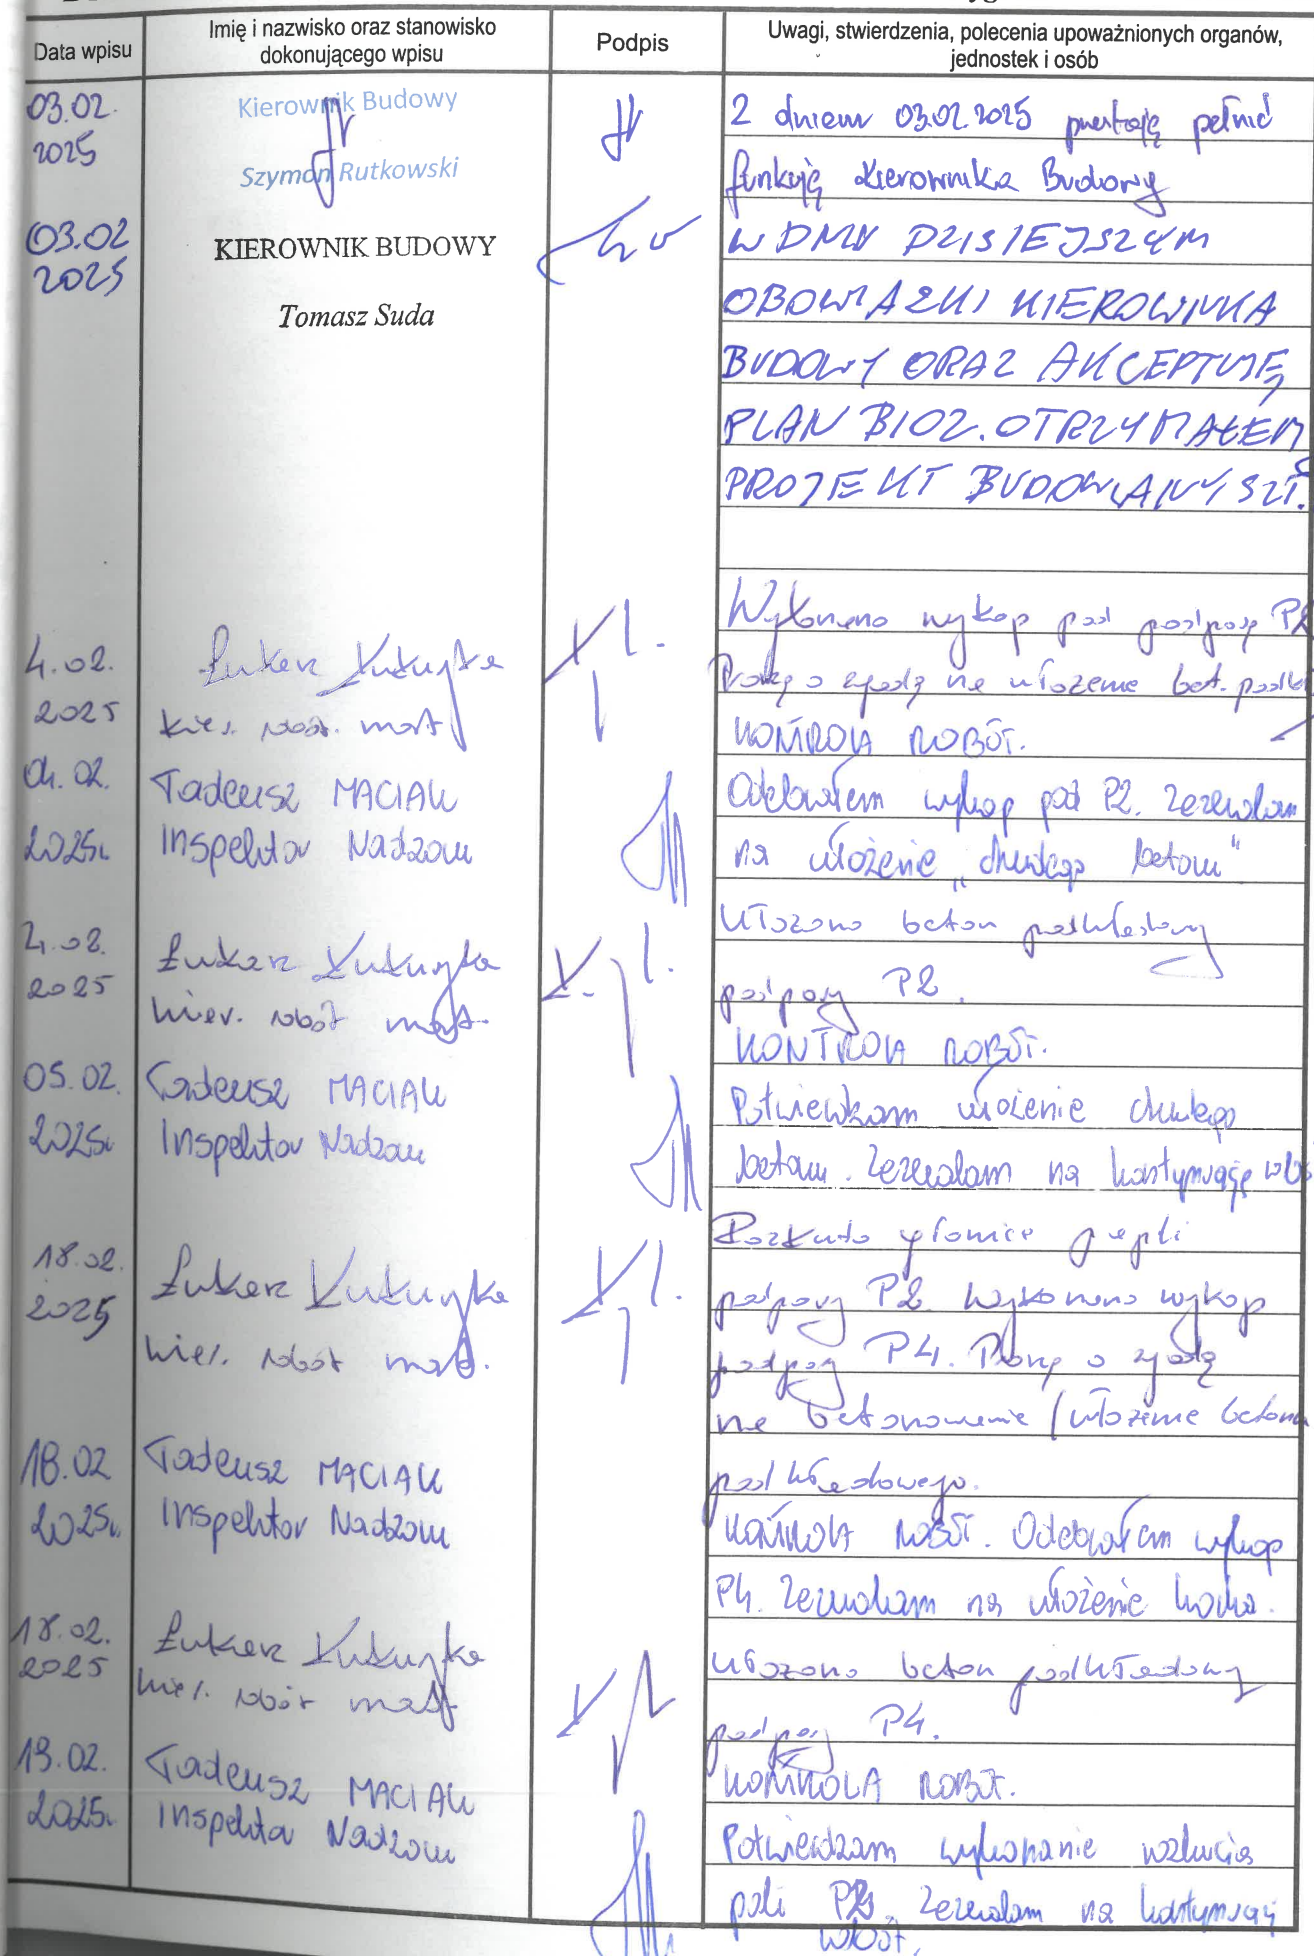 Data wpisu
Imię i nazwisko oraz stanowisko
dokonującego wpisu
Podpis
Uwagi, stwierdzenia, polecenia upoważnionych organów,
jednostek i osób
03.02.
2025
Kierownik Budowy
Szymon Rutkowski
Z dniem 03.02.2025 przestaję pełnić
funkcję Kierownika Budowy
03.02
2025
KIEROWNIK BUDOWY
Tomasz Suda
W DNIU DZISIEJSZYM
OBOWIĄZKI KIEROWNIKA
BUDOWY ORAZ AKCEPTUJĘ
PLAN BIOZ. OTRZYMAŁEM
PROJEKT BUDOWLANY SZT.
4.02.
2025
Łukasz
kier. robót. most
Wykonano wykop pod podporę P2
Proszę o zgodę na ułożenie bet. podkł
04.02.
2025r.
Tadeusz MACIAK
Inspektor Nadzoru
KONTROLA ROBÓT.
Odebrałem wykop pod P2. Zezwalam
na ułożenie „chudego betonu"
4.02.
2025
Łukasz
kier. robót most.
Ułożono beton podkładowy
podpory P2.
05.02.
2025r
Tadeusz MACIAK
Inspektor Nadzoru
KONTROLA ROBÓT.
Potwierdzam ułożenie chudego
betonu. Zezwalam na kontynuację rob
18.02.
2025
Łukasz
kier. robót most.
Rozkuto głowice pali
podpory P2 wykonano wykop
podpory P4. Proszę o zgodę
na betonowanie (ułożenie betonu
podkładowego.
18.02
2025r.
Tadeusz MACIAK
Inspektor Nadzoru
KONTROLA ROBÓT. Odebrałem wykop
P4. Zezwalam na ułożenie
18.02.
2025
Łukasz
kier. robót most
Ułożono beton podkładowy
podpory P4.
19.02.
2025r.
Tadeusz MACIAK
Inspektor Nadzoru
KONTROLA ROBÓT.
Potwierdzam wykonanie rozkucia
pali Zezwalam na kontynuację
robót.